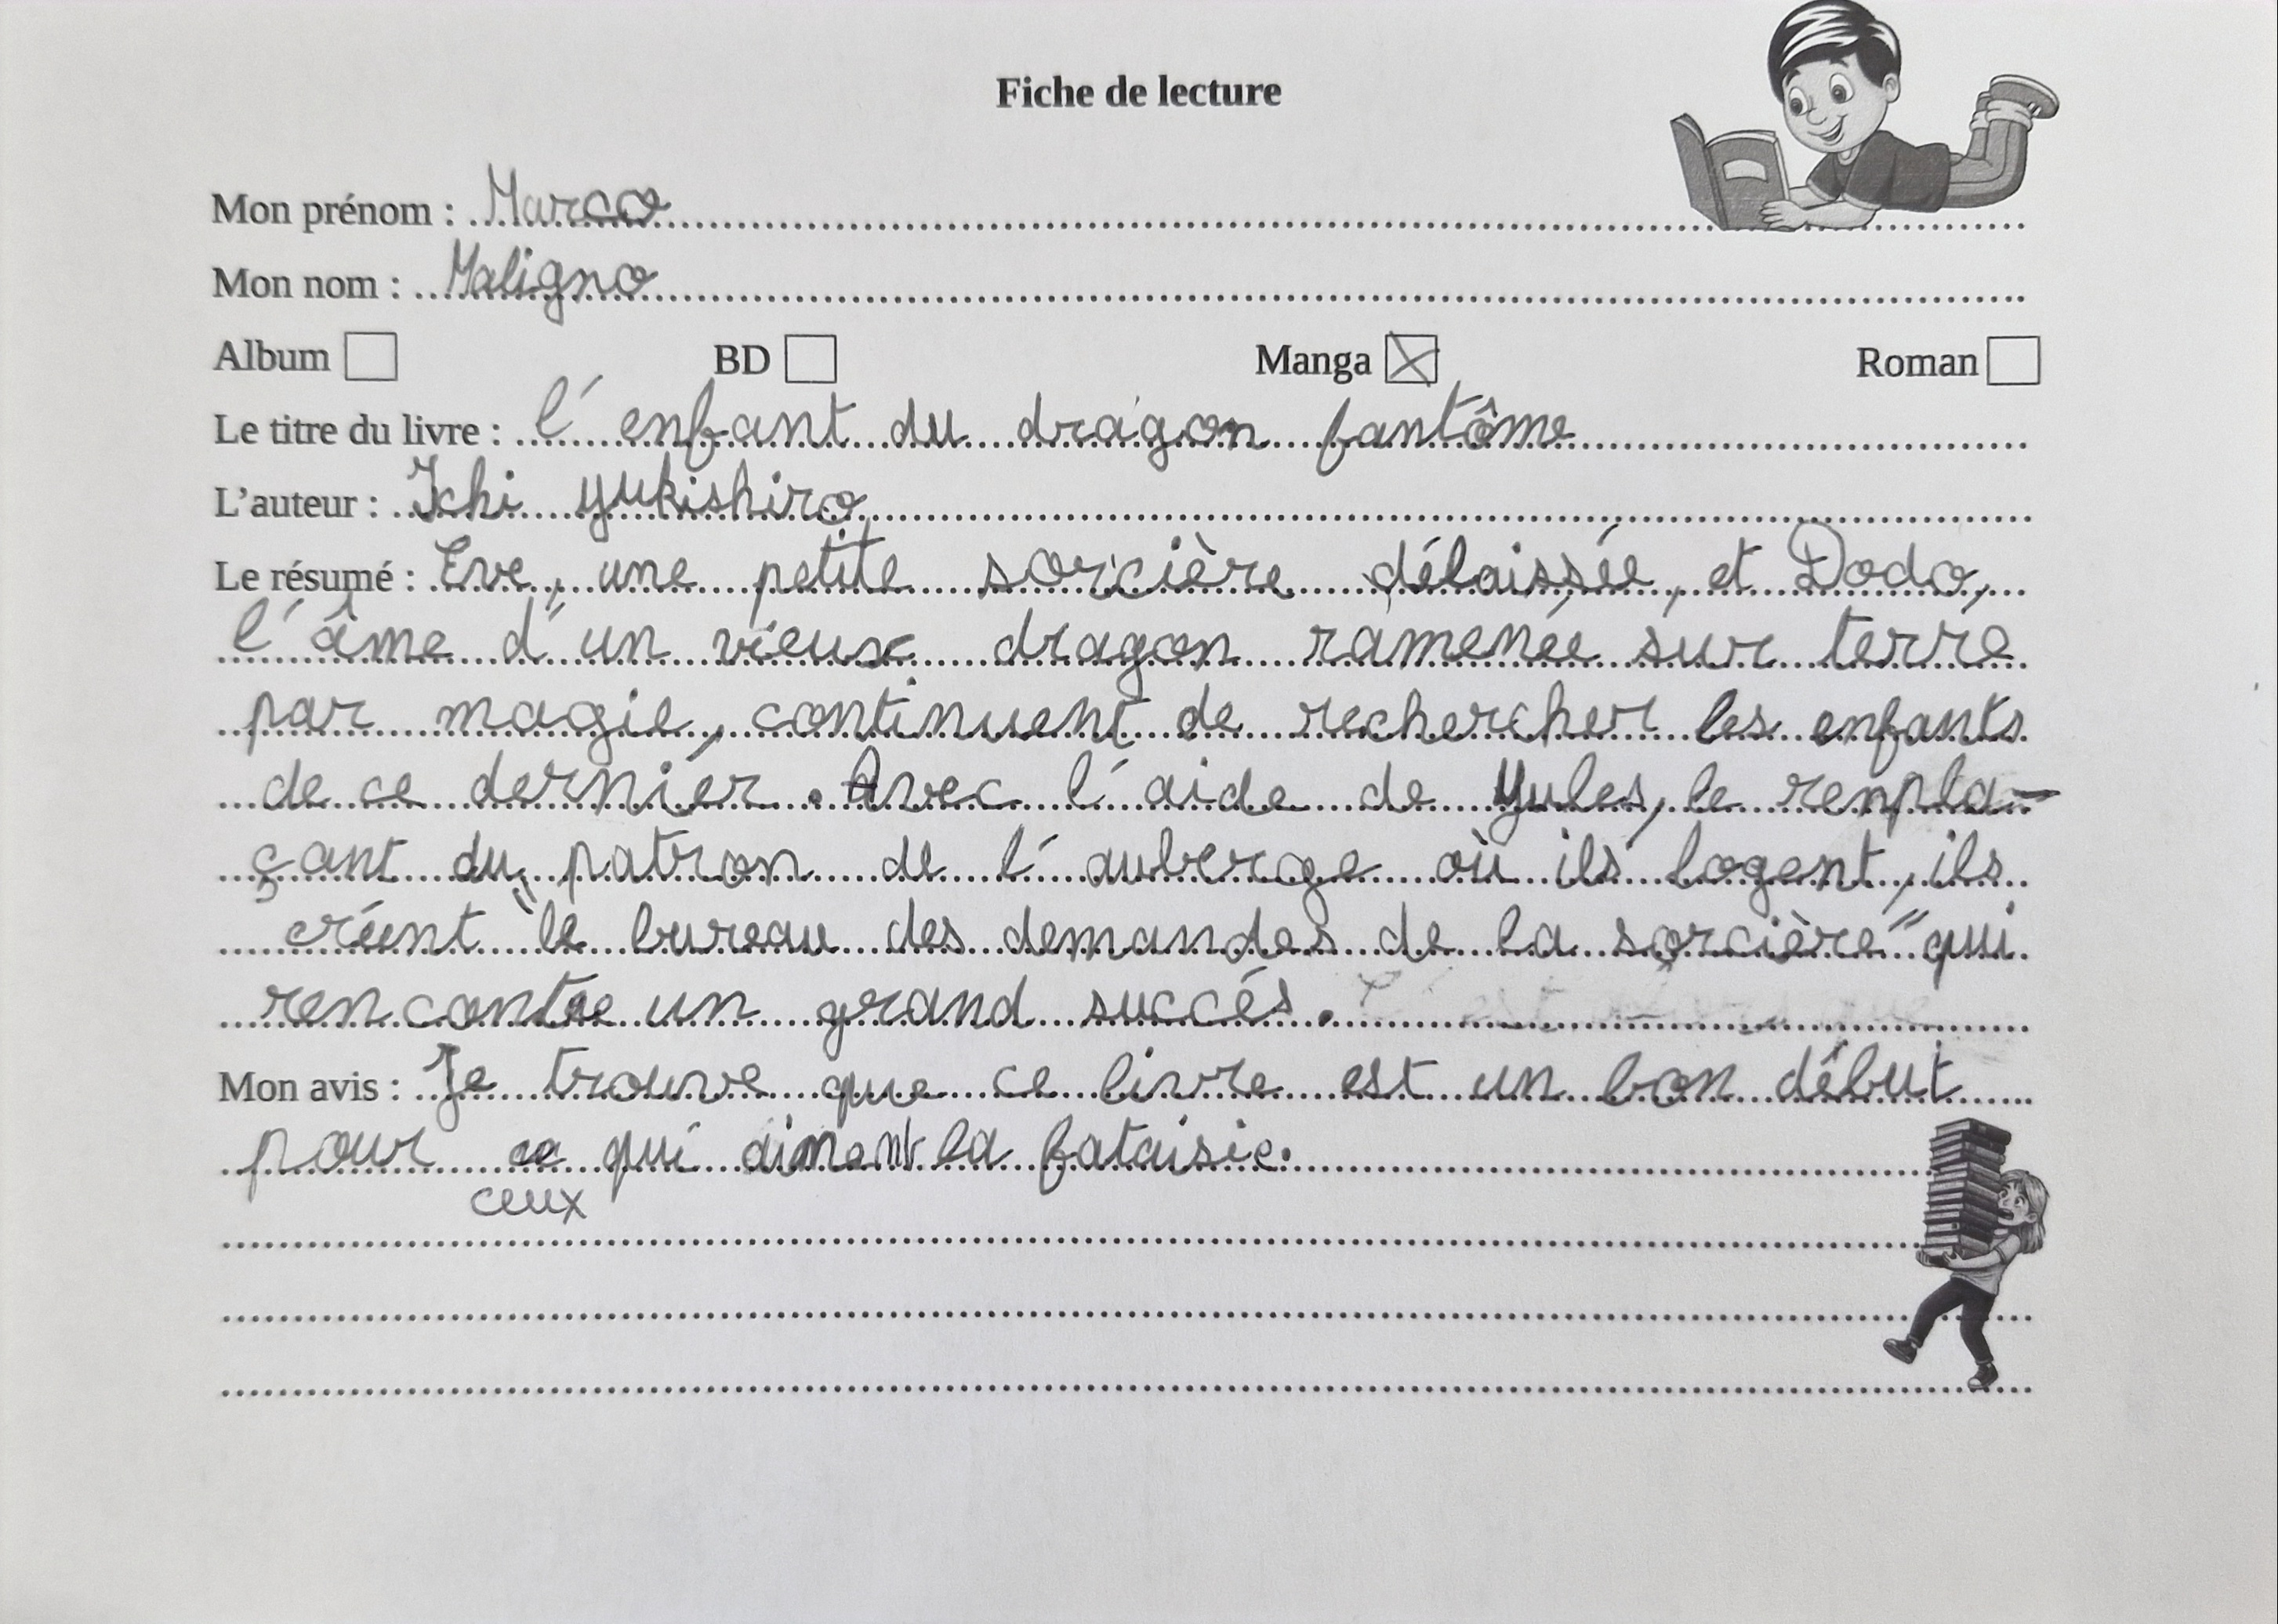 Fiche de lecture
Mon prénom : Marco
Mon nom : Maligno
Album BD Manga Roman
Le titre du livre : l'enfant du dragon fantôme
L'auteur : Ichi yukishiro
Le résumé : Eve, une petite sorcière délaissée, et Dodo,
l'âme d'un vieux dragon ramenée sur terre
par magie, continuent de rechercher les enfants
de ce dernier. Avec l'aide de Yules, le renpla-
çant du patron de l'auberge où ils logent, ils
créent "le bureau des demandes de la sorcière" qui
rencontre un grand succés.
Mon avis : Je trouve que ce livre est un bon début
pour ce qui aiment la fataisie.
ceux